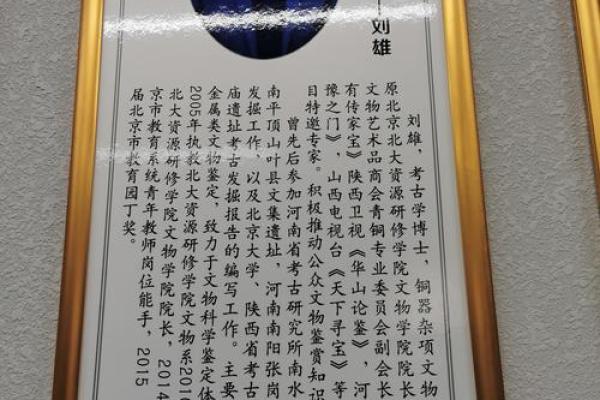 刘雄
刘雄，考古学博士，铜器杂项文物
原北京北大资源研修学院文物学院院长
文物艺术品商会青铜专业委员会副会长
有传家宝》陕西卫视《华山论鉴》，河
豫之门》，山西电视台《天下寻宝》等
目特邀专家。积极推动公众文物鉴赏知识
曾先后参加河南省考古研究所南水
南平顶山叶县文集遗址，河南南阳张岗
发掘工作，以及北京大学、陕西省考古
庙遗址考古发掘报告的编写工作。主要
金属类文物鉴定，致力于文物科学鉴定体
2005年执教北大资源研修学院文物系2010
北大资源研修学院文物学院院长，2014
京市教育系统青年教师岗位能手，2015
届北京市教育园丁奖。